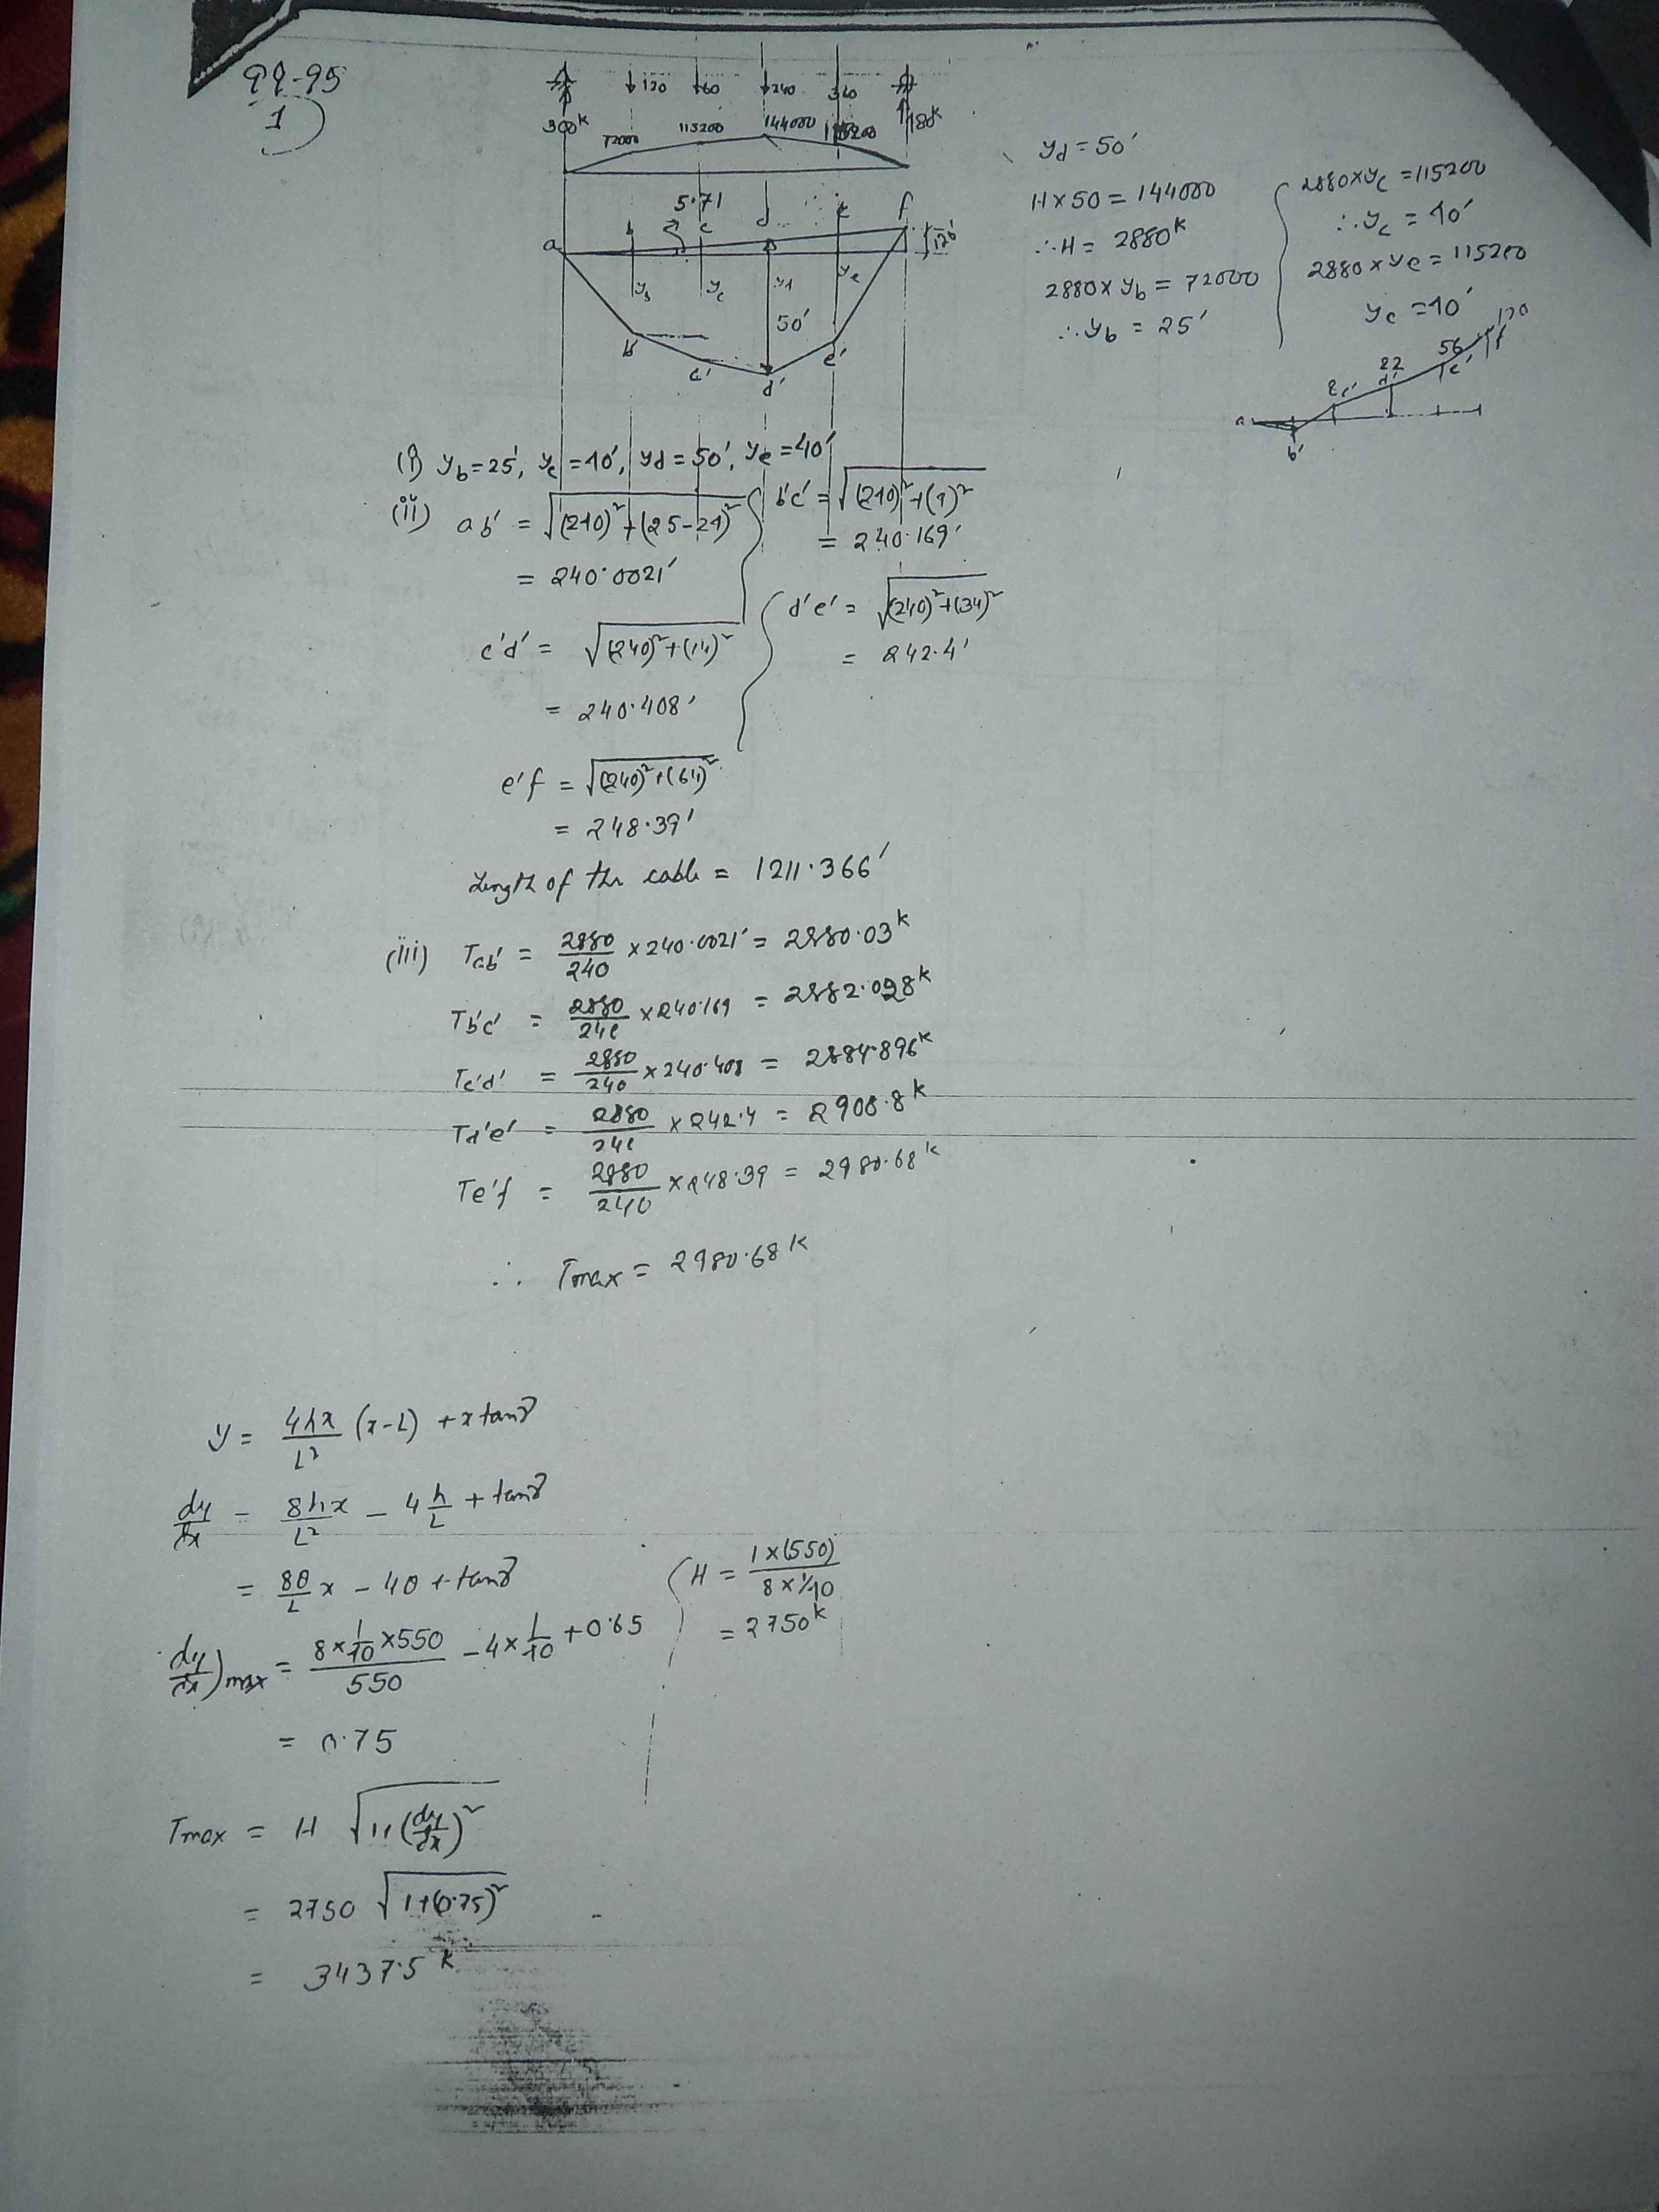 94-95
1)
120 60 240 360
300k 180k
72000 113200 144000 115200
5.71
a b c d e f
120'
yb yc yd ye
50'
b' c' d' e'
yd = 50'
H × 50 = 144000
∴ H = 2880k
2880 × yb = 72000
∴ yb = 25'
2880 × yc = 115200
∴ yc = 40'
2880 × ye = 115200
ye = 40'
a b' 8 c' 22 d' 56 e' 120 f
(i) yb = 25', yc = 40', yd = 50', ye = 40'
(ii) ab' = √(240)² + (25-24)²
= 240.0021'
b'c' = √(240)² + (9)²
= 240.169'
c'd' = √(240)² + (14)²
= 240.408'
d'e' = √(240)² + (34)²
= 242.4'
e'f = √(240)² + (64)²
= 248.39'
Length of the cable = 1211.366'
(iii) Tab' = 2880/240 × 240.0021' = 2880.03k
Tb'c' = 2880/240 × 240.169 = 2882.028k
Tc'd' = 2880/240 × 240.408 = 2884.896k
Td'e' = 2880/240 × 242.4 = 2908.8k
Te'f = 2880/240 × 248.39 = 2980.68k
∴ Tmax = 2980.68k
y = 4hx/L² (x-L) + x tanγ
dy/dx = 8hx/L² - 4 h/L + tanγ
= 8θ/L x - 4θ + tanγ
dy/dx)max = 8 × 1/40 × 550 / 550 - 4 × 1/40 + 0.65
= 0.75
H = 1 × (550) / 8 × 1/40
= 2750k
Tmax = H √1+(dy/dx)²
= 2750 √1+(0.75)²
= 3437.5k